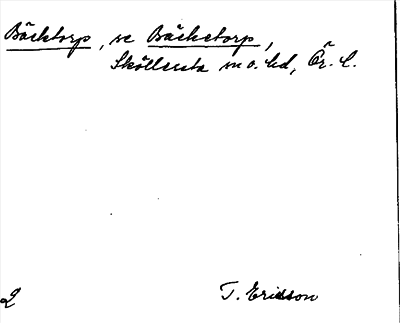 Bäcktorp, se Bäcketorp,
Sköllersta sn o. hd, Ör. l.
2
T. Ericsson